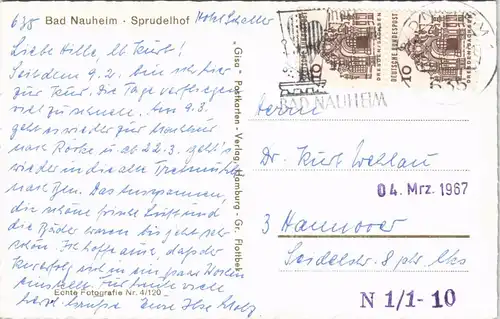 635 Bad Nauheim · Sprudelhof Hotel Schaller
Liebe Hille, lb Kurt!
Seit dem 9.2. bin ich hier
zur Kur. Die Tage verfliegen
viel zu schnell. Am 9.3.
geht es wieder zur
nach und ab 22.3. geht's
wieder in die alte
nach Gen. Das Ausspannen,
die schöne frische Luft und
die Bäder waren bis jetzt sehr
schön. Ich hoffe auch, daß der
Kurerfolg sich in ein paar Wochen
einstellt. Für heute viele
herzl. Grüße Eure Ilse
Echte Fotografie Nr. 4/120
„Gisa" - Postkarten - Verlag, Hamburg - Gr. Flottbek
10
DEUTSCHE BUNDESPOST
DRESDEN/SACHSEN
10
DRESDEN/SACHSEN
BAD NAUHEIM
635
Herrn
Dr. Kurt Wehlau
04. Mrz. 1967
3 Hannover
8 ptr. lks
N 1/1- 10